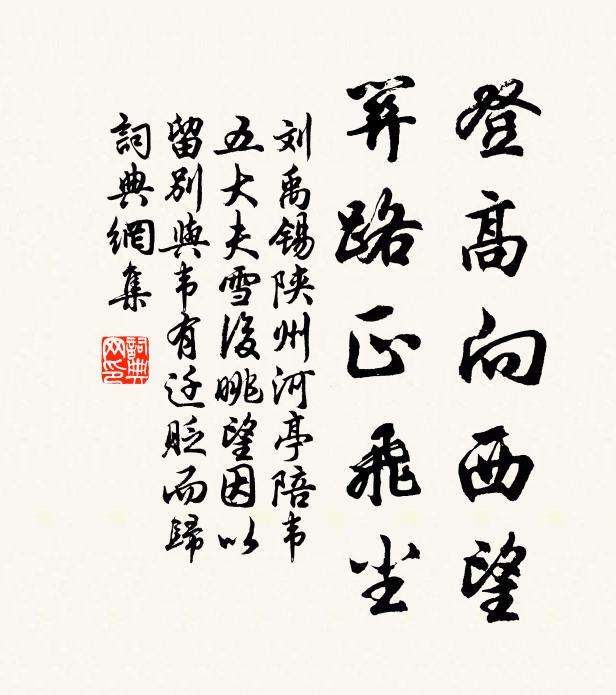 登高向西望
关路正飛尘
刘禹锡陕州河亭陪韦
五大夫雪後眺望因以
留别與韦有迁貶而歸
詞典網集
詞典网印